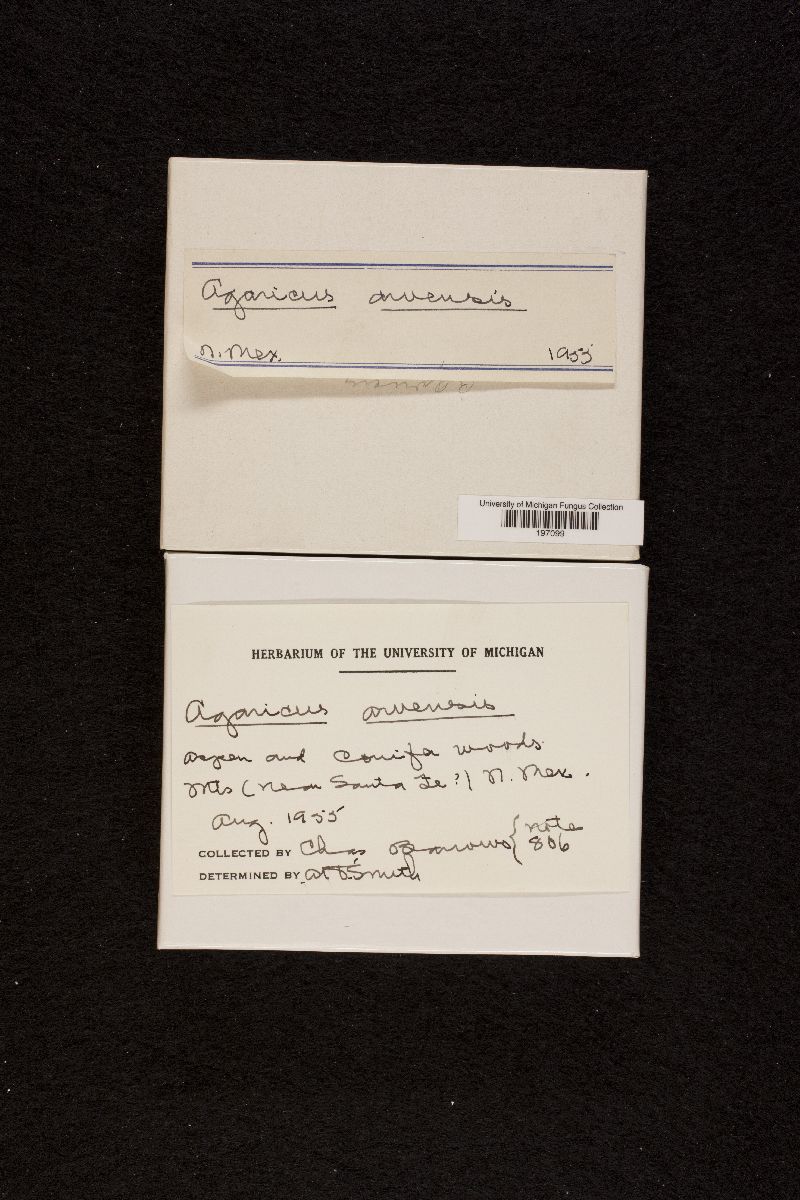 Agaricus arvensis
N. Mex. 1955
University of Michigan Fungus Collection
197099
HERBARIUM OF THE UNIVERSITY OF MICHIGAN
Agaricus arvensis
Aspen and conifer woods
Mts (near Santa Fe?) N. Mex.
Aug. 1955
COLLECTED BY Chas Barrows { note 806
DETERMINED BY AH Smith